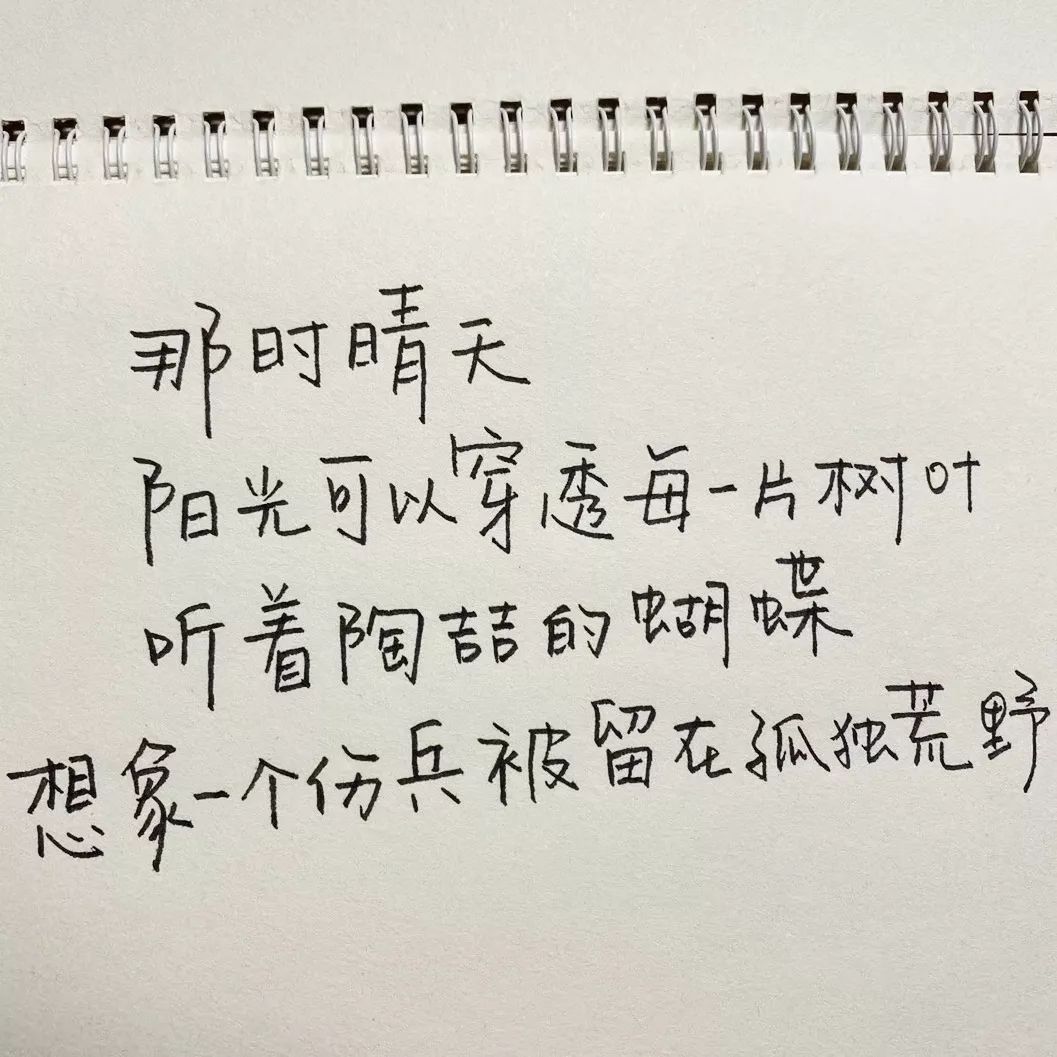 那时晴天
阳光可以穿透每一片树叶
听着陶喆的蝴蝶
想象一个伤兵被留在孤独荒野